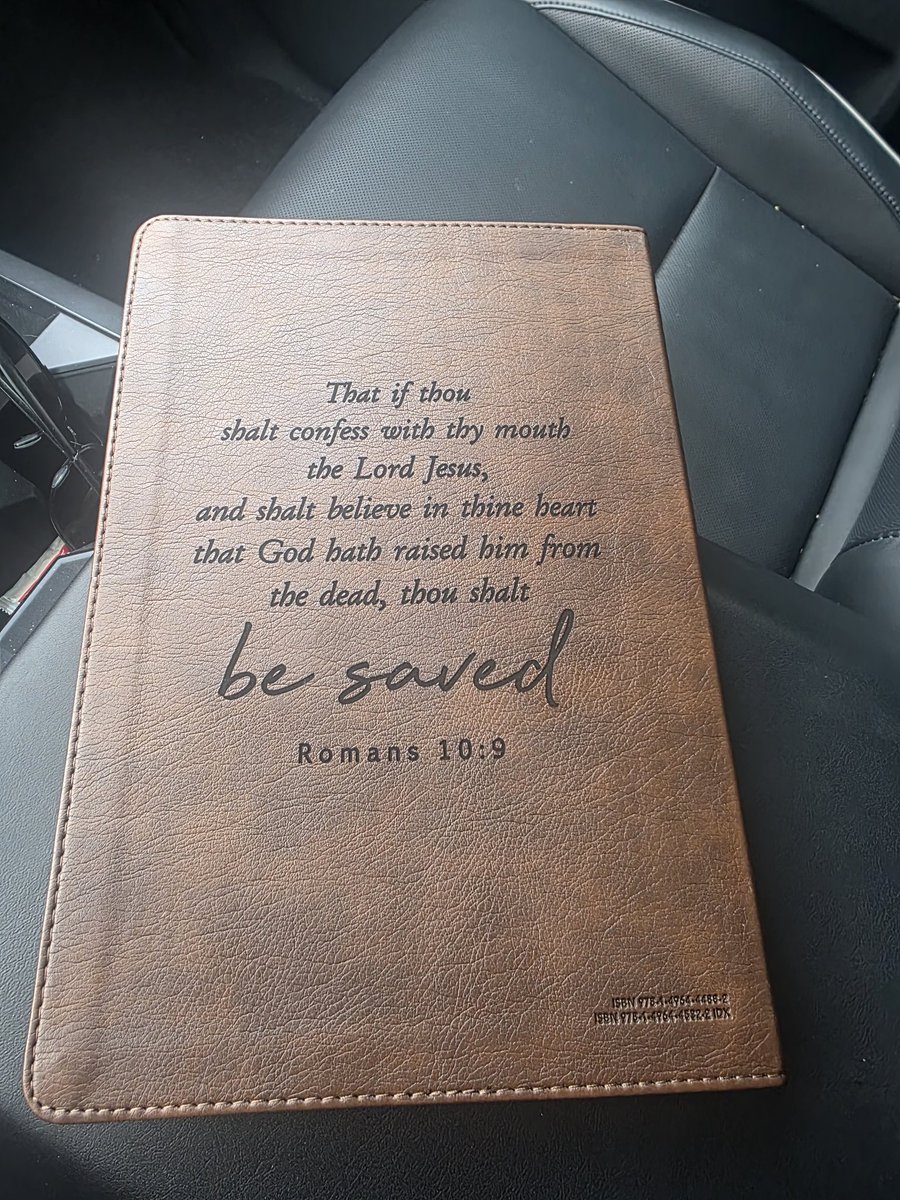 That if thou
shalt confess with thy mouth
the Lord Jesus,
and shalt believe in thine heart
that God hath raised him from
the dead, thou shalt
be saved
Romans 10:9
ISBN 978-1-4964-4488-2
ISBN 978-1-4964-4582-2 IDX